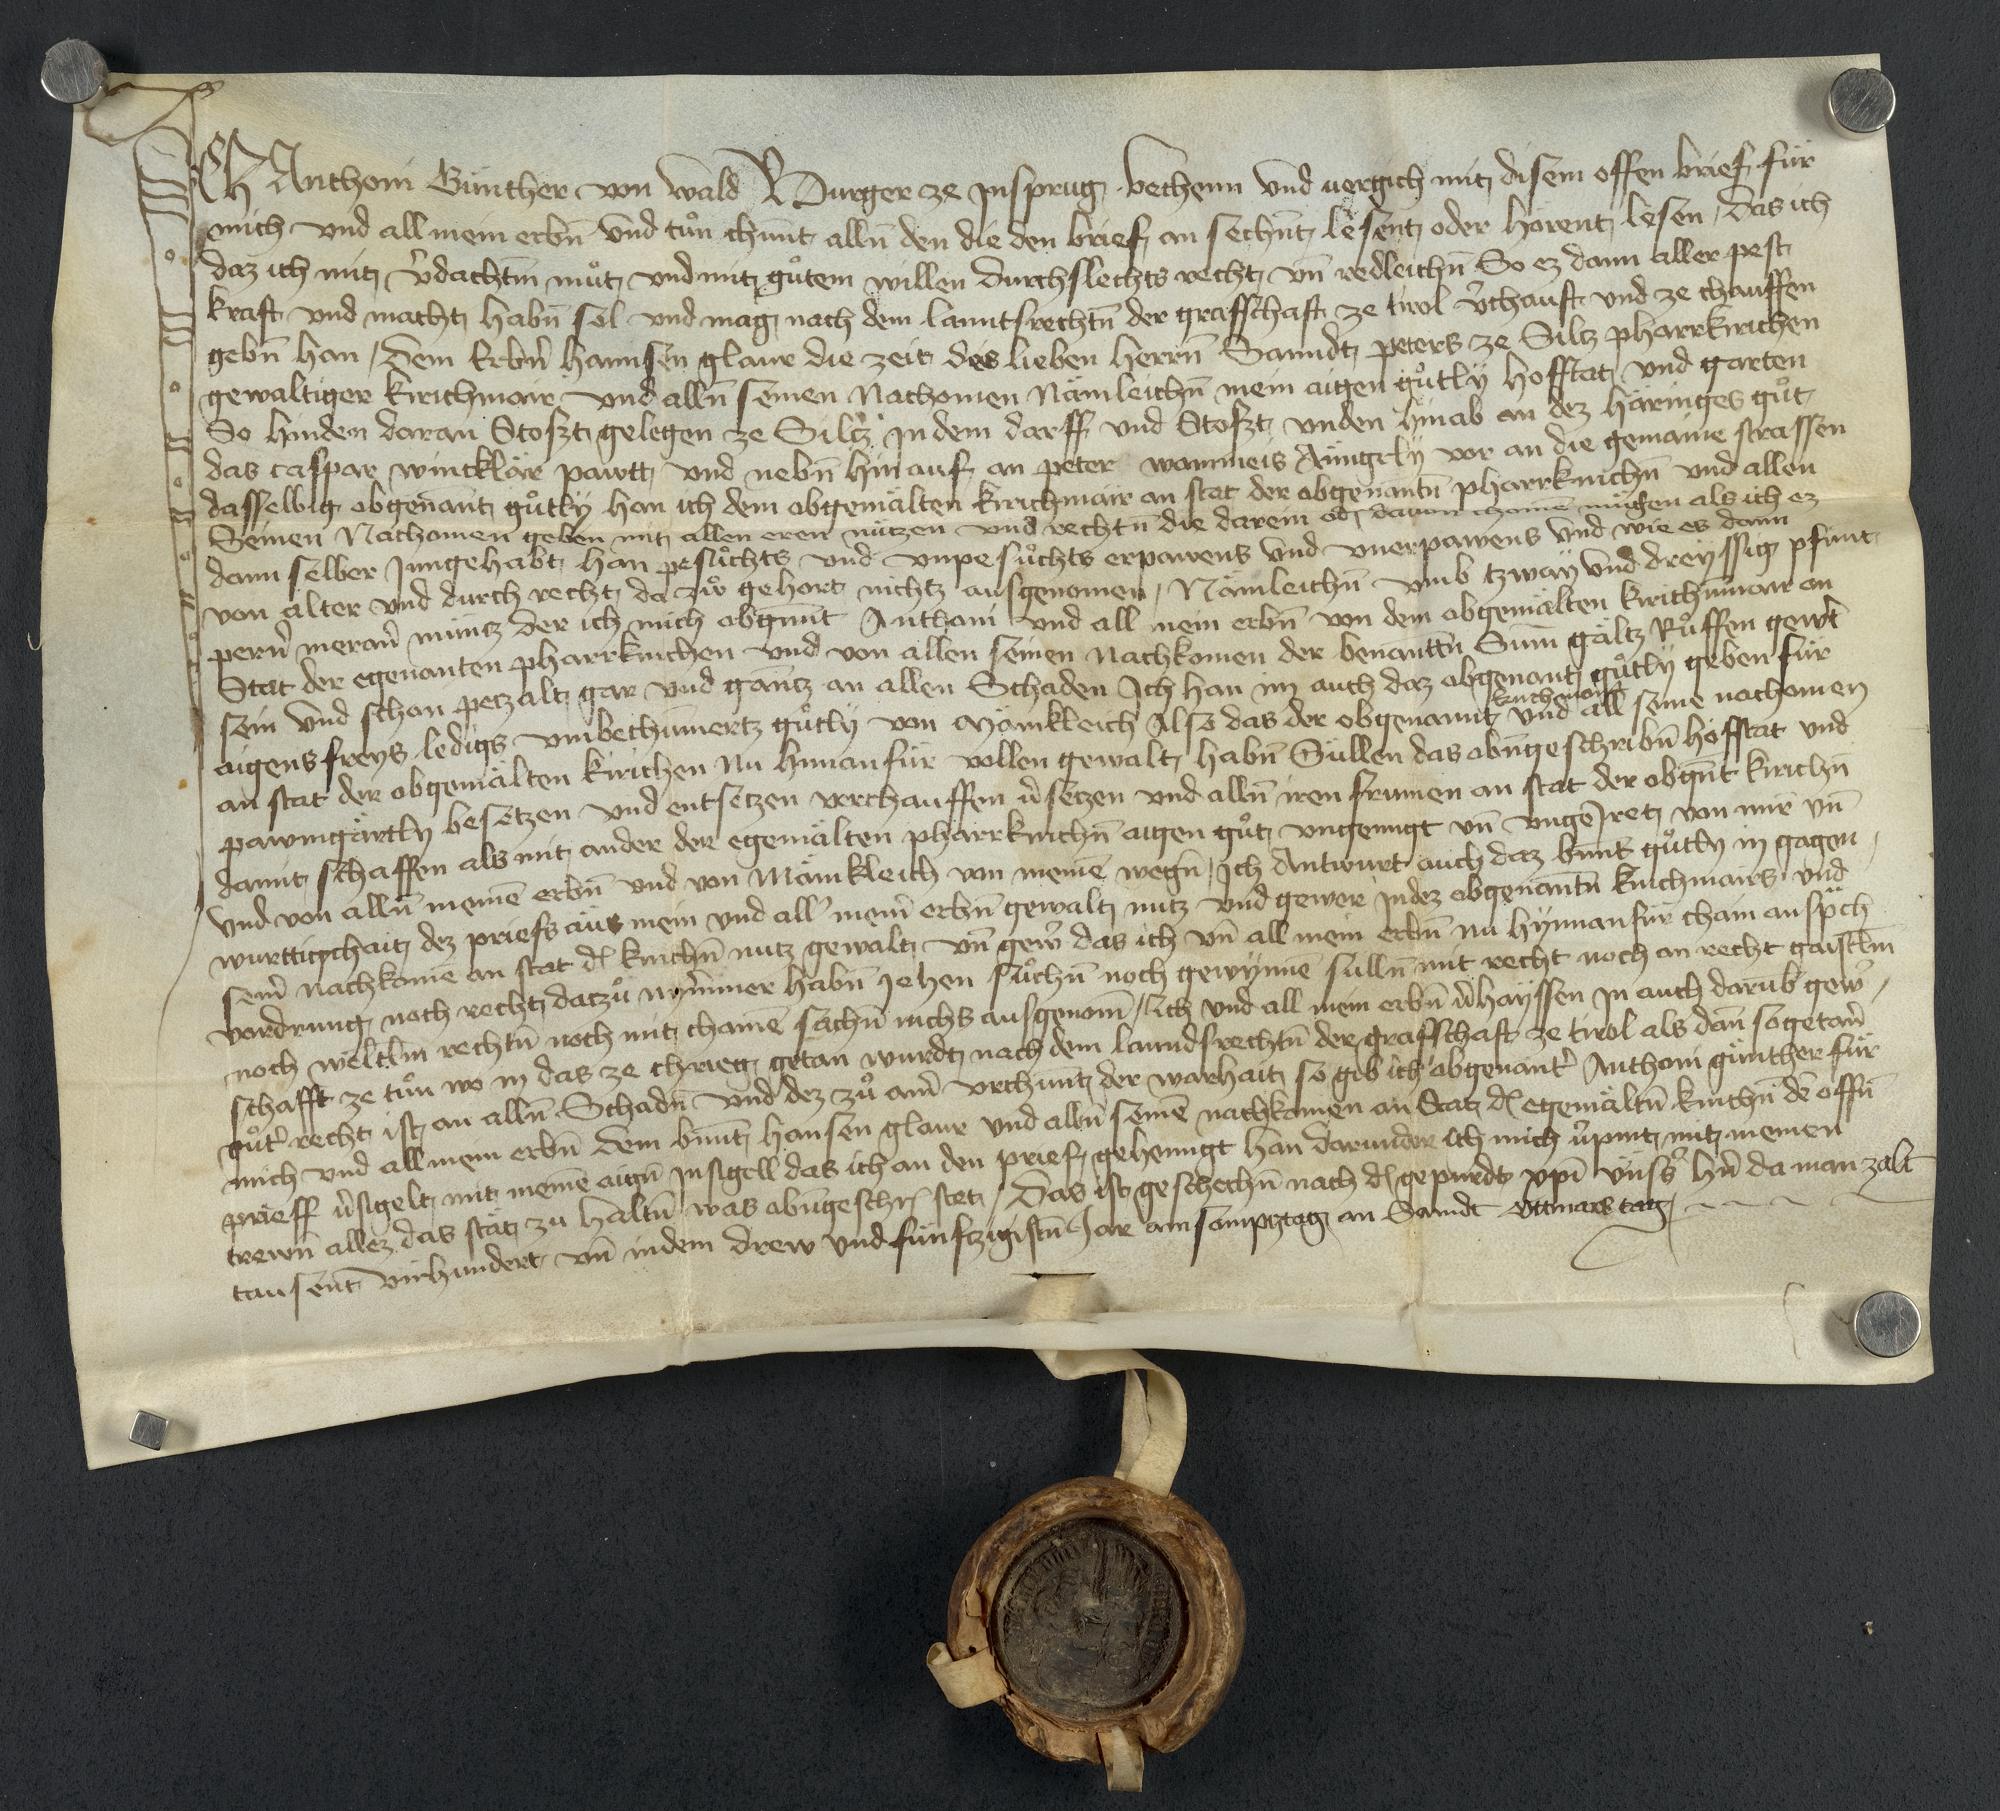 Ich Anthoni Günther von wald Burger ze Jnsprug bechenn vnd vergich mit disem offen brief für
mich vnd all mein erbn̄ vnd tůn chunt alln̄ den die den brief an sechn̄t lesent oder hörent lesen / das ich
daz ich mit v̓dachtm̄ můt vnd mit gůtem willen durchslechts recht vn̄ redleichn̄ So ez dann aller pest
kraft vnd macht habn̄ sol vnd mag nach dem lanntsrechtn̄ der grafschaft ze tirol v̓chauft vnd ze chauffen
gebn̄ han / dem Erbn̓ hannsen glawe die zeit des lieben herrn̄ Sanndt peters ze Siltz pharrkirichen
gewaltiger kirichmair vnd alln̄ seinen Nachomen Nämleichn̄ mein aigen gůtly hofftat vnd garten
So hinden daran Stoszt gelegen ze Siltz in dem darff vnd Stoszt vnden hinab an dez häringes gůt
das caspar wincklär pawtt vnd nebn̄ hin auf an peter wammeis Anngerly vor an die gemaine strassen
dasselbig obgenant gůtly han ich dem obgemälten kirichmair an stat der obgenantn̄ pharrkirichn̄ vnd allen
Seinen Nachomen geben mit allen eren nützen vnd rechtn̄ die darein od davon chomē mügen als ich ez
dann selber Jnngehabt han pesůchts vnd vnpesůchts erpawens vnd vnerpawens vnd wie es dann
von älter vnd durch recht da zů gehort nichtz ausgenomen / Nämleichn̄ vmb tzway vnd dreyssig pfunt
pern̓ meran̓ müntz der ich mich obgnn̄t Anthoni vnd all mein erbn̄ von dem obgemälten kirichmair an
Stat der egenanten pharrkirichen vnd von allen seinen nachkomen der benanttn̄ Sum̄ gältz Růffen gewt̓
sein vnd schon petzalt gar vnd gantz an allen Schaden Ich han im auch daz obgenant gůtly geben für
aigens freys ledigs vmbechümertz gůtly von mänkleich Also das der obgenannt kirchmair vnd all seine nachomen
an stat der obgemälten kirichen Nu hinnanfür vollen gewalt habn̄ Süllen das abngeschribn̄ hofftat vnd
pawmgärtly besetzen vnd entsetzen verchauffen v̓setzen vnd alln̄ iren frumen an stat der obgn̄t kirichn̄
damit schaffen als mit ander der egemälten pharrkirichn̄ aigen gůt vngenugt vn̄ vngeiret von mir vn̄
vnd von alln̄ meinē erbn̄ vnd von Mänkleich von meinē wegn̄ / Ich Antwurt auch daz bn̄nt gůtly in gagen
wurtticchait dez priefs aus mein vnd all meiner erbn̄ gewalt nutz vnd gewer in dez obgenantn̄ kirichmairs vnd
sein̓ nachkomē an stat d' kirichn̄ nutz gewalt vn̄ gew̓ das ich vn̄ all mein erbn̄ nu hynnanfür chain ansp̈ch
vordrung noch recht datzů nym̓mer habn̄ Jehen sůchn̄ noch gewynnē sulln̄ mit recht noch an recht gaistlm̄
noch weltlm̄ rechtn̄ noch mit chainē sachn̄ nichs ausgenom̄ / Ich vnd all mein erbn̄ v̓hayssen in auch darub̓ gew̓
schafft ze tůn wo in das ze chrieg getan wurdt nach dem lanndsrechtn̄ der grafschaft ze tirol als dan̄ sogetan̓
gůt̓ recht ist an alln̄ Schadn̄ vnd dez zů ain̓ vrchunt der warhait so gib ich obgenant̓ Anthoni günther für
mich vnd all mein erbn̄ dem bn̄nt hansen glawe vnd alln̄ seinē nachkomen an Stat d' egemältn̄ kirichn̄ dē offn̄
prieff v̓sigelt mit meinē aign̄ Jnsigell das ich an den prief gehenngt han darunder ich mich v̓pint mit meinen
trewn̄ allez das stät zu haltn̄ was abn̄geschr stet / Das ist geschechn̄ nach d' gepurdt xpī vnss̓ hn̄ da man zalt
tausent virhundert vn̄ in dem drew vnd fünftzigistn̄ Jar am samptztag an Sanndt Ottmars tag